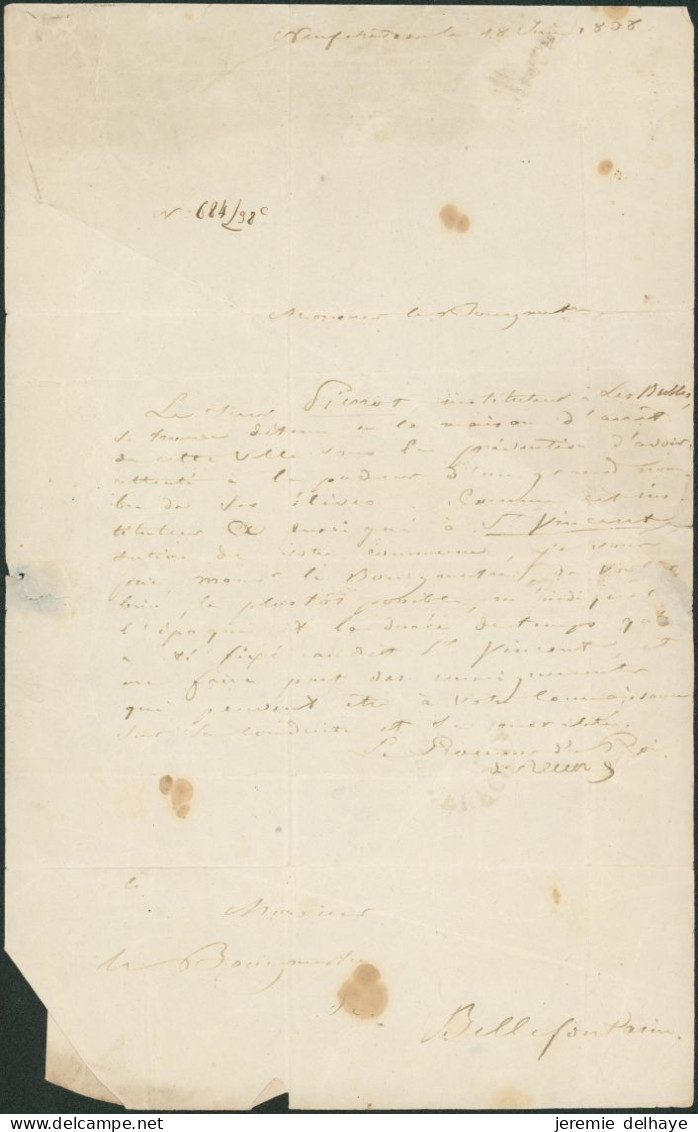 Neufchateau le 18 Juin 1838
N° 684/98c
Monsieur le Bourgmestre
Le sieur Pierrot instituteur à Les Bulles,
se trouve détenu en la maison d'arrêt
de cette ville sous la prévention d'avoir
attenté à la pudeur d'un grand nom-
bre de ses élèves. Comme cet ins-
tituteur a enseigné à St Vincent
section de votre commune, je vous
prie Monsr le Bourgmestre, de vouloir
bien, le plustôt possible, m'indiquer
l'époque et la durée du temps qu'il
a été fixé audit St Vincent, et
me faire part des renseignements
qui peuvent être à votre connaissance
sur sa conduite et sa moralité.
Le Procureur du Roi
Monsieur
le Bourgmestre
de
Bellefontaine.
delcampe.net
jeremie delhaye